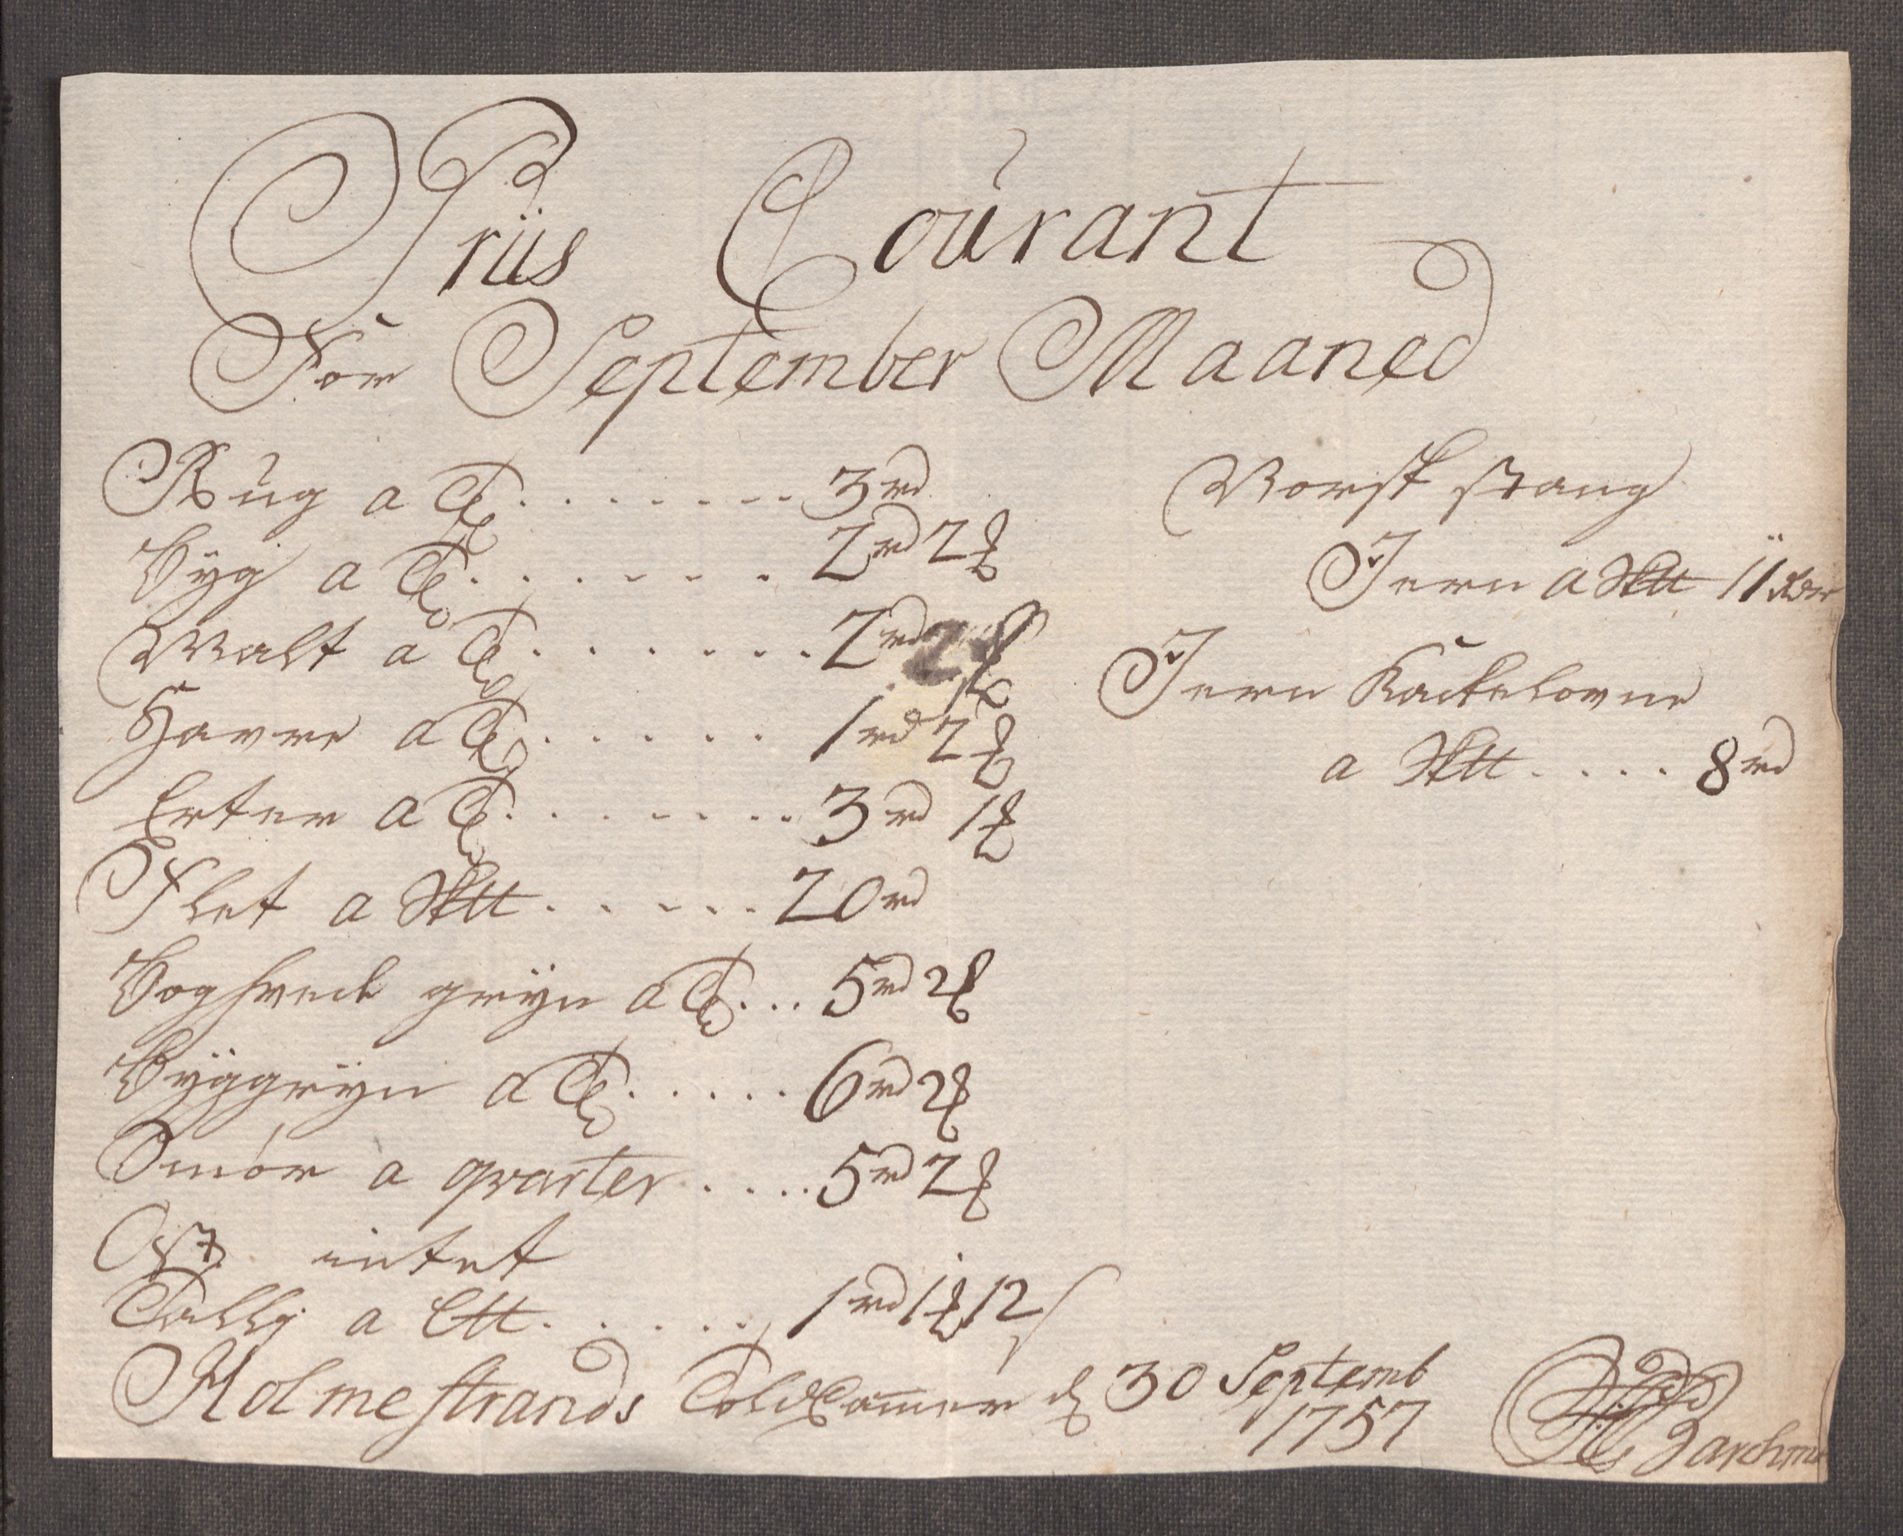 Priis Courant
For September Maaned
Rug a Tø 3 rd
Byg a Tø 2 rd 2 ß
Malt a Tø 2 rd 2
Havre a Tø 1 rd 2
Erter a Tø 3 rd 1
Flet a Sktt 20 rd
Boghvede gryn a Tø 5 rd 2
Byggryn a Tø 6 rd 2
Smör a qvarter 5 rd 2
Ost intet
Tallig a Ltt 1 rd 1 12 s
Norsk stang
Jern a Sktt 11 rdr
Jern Kackelovne
a Sktt 8 rd
Holmestrands Told Cammer d 30 Septemb
1757